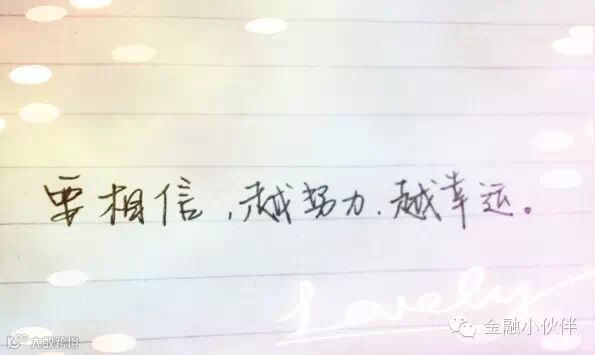 要相信,越努力,越幸运。
Lovely
金融小伙伴
大数跨境